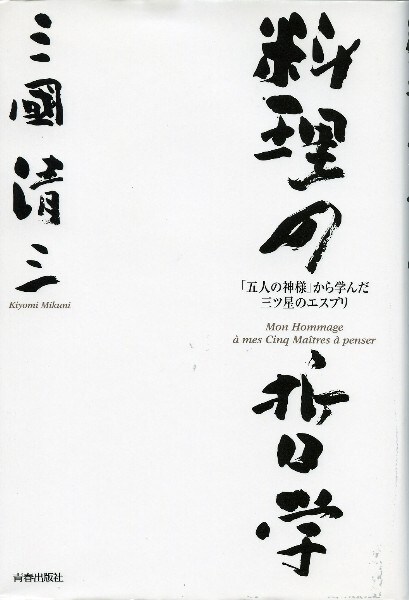 料理の哲学
「五人の神様」から学んだ
三ツ星のエスプリ
Mon Hommage
à mes Cinq Maîtres à penser
三國清三
Kiyomi Mikuni
青春出版社